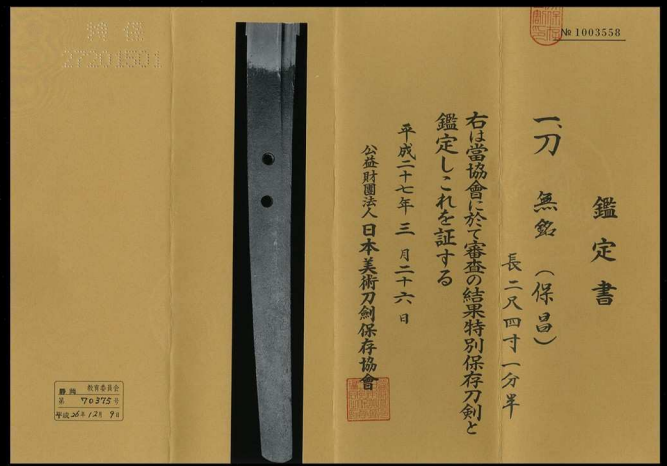 № 1003558
鑑定書
一、刀 無銘(保昌)
長二尺四寸一分半
右は當協會に於て審査の結果特別保存刀劍と
鑑定しこれを証する
平成二十七年三月二十六日
公益財團法人 日本美術刀劍保存協會
27201501
静岡 教育委員会
第 70375 号
平成 26年 12月 9日